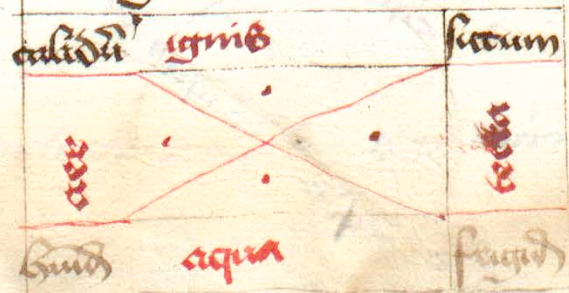 calidū ignis siccum
aer terra
humid aqua frigid